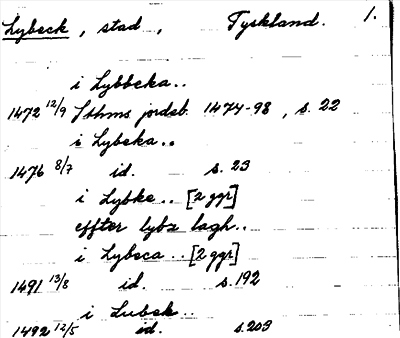 Lybeck, stad, Tyskland. 1.
i Lybbeka..
1472 12/9 Sthms jordeb. 1474-98, s. 22
i Lybeka..
1476 8/7 id. s. 23
i Lybke.. [2 ggr]
effter lybz lagh..
i Lybeca.. [2 ggr]
1491 13/8 id. s. 192
i Lubek..
1492 12/5 id. s. 203